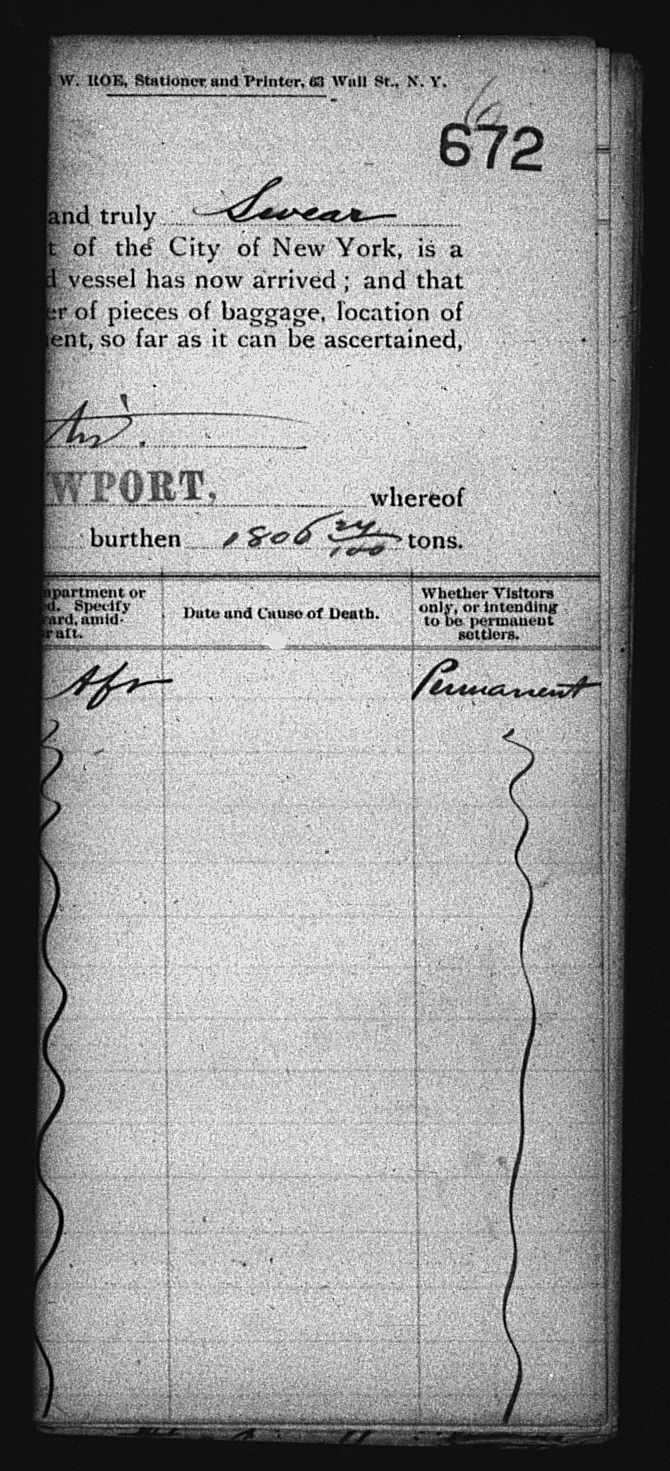 W. ROE, Stationer and Printer, 63 Wall St., N. Y.
6
672
and truly Swear
t of the City of New York, is a
d vessel has now arrived; and that
er of pieces of baggage, location of
ent, so far as it can be ascertained,
WPORT, whereof
burthen 1806 24/100 tons.
apartment or
d. Specify
ard, amid-
r aft.
Date and Cause of Death.
Whether Visitors
only, or intending
to be permanent
settlers.
Aft Permanent